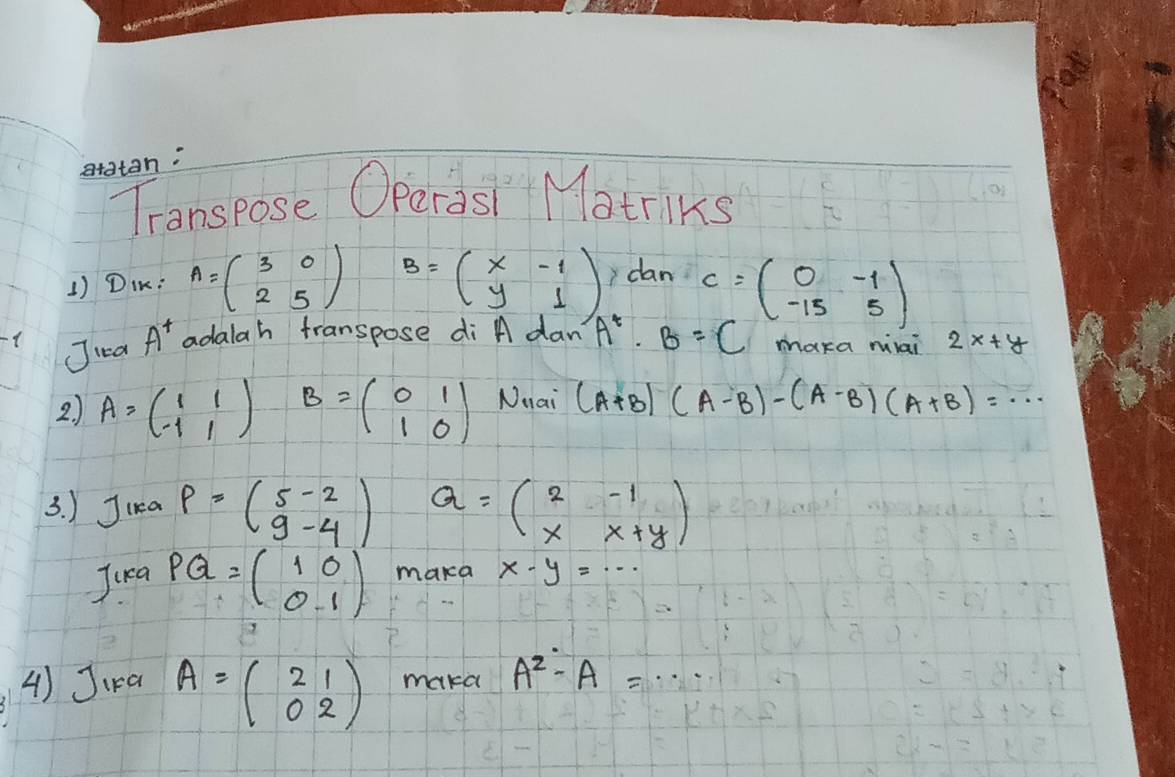 atatan :
Transpose Operasi Matriks
1) Dik: A = ( 3 0 ) B = ( x -1 ) , dan C = ( 0 -1 )
( 2 5 ) ( y 1 ) ( -15 5 )
Jika A^t adalah transpose di A dan A^t . B = C maka nilai 2x+y
2.) A = ( 1 1 ) B = ( 0 1 ) Nilai (A+B) (A-B) - (A-B) (A+B) = ...
( -1 1 ) ( 1 0 )
3.) Jika P = ( 5 -2 ) Q = ( 2 -1 )
( 9 -4 ) ( x x+y )
Jika PQ = ( 1 0 ) maka x - y = ...
( 0 -1 )
4) Jika A = ( 2 1 ) maka A² - A = ....
( 0 2 )